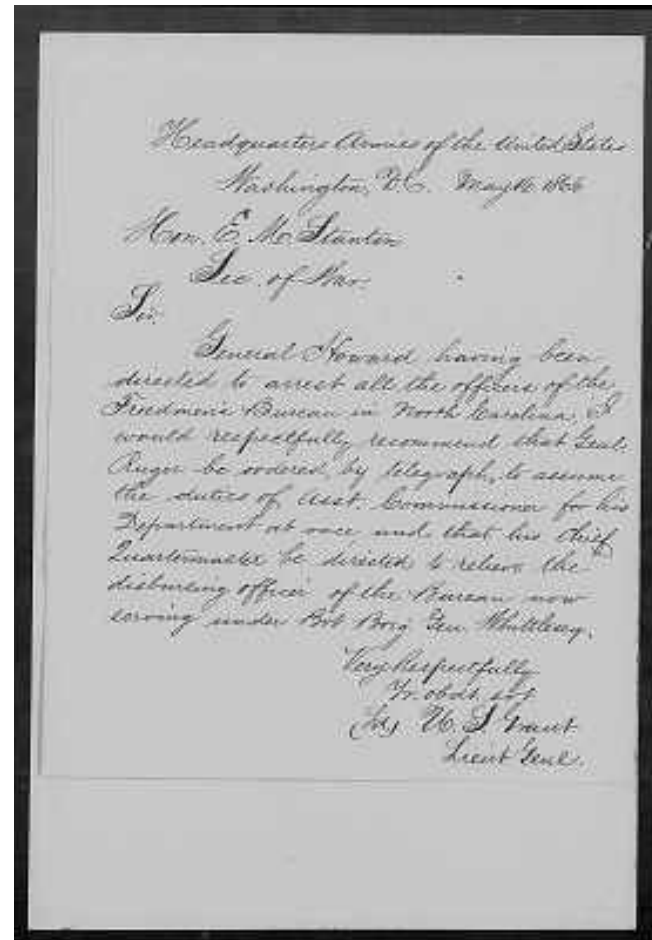 Headquarters Armies of the United States
Washington, D.C. May 16 1866
Hon. E. M. Stanton
Sec. of War.
Sir.
General Howard having been
directed to arrest all the officers of the
Freedmen's Bureau in North Carolina, I
would respectfully recommend that Genl.
Ruger be ordered, by telegraph, to assume
the duties of Asst. Commissioner for his
Department at once and that his Chief
Quartermaster be directed to relieve the
disbursing officer of the Bureau now
serving under Bvt Brig Gen. Whittlesey.
Very Respectfully
Yr. obdt. svt
(Sd) U. S. Grant
Lieut Genl.